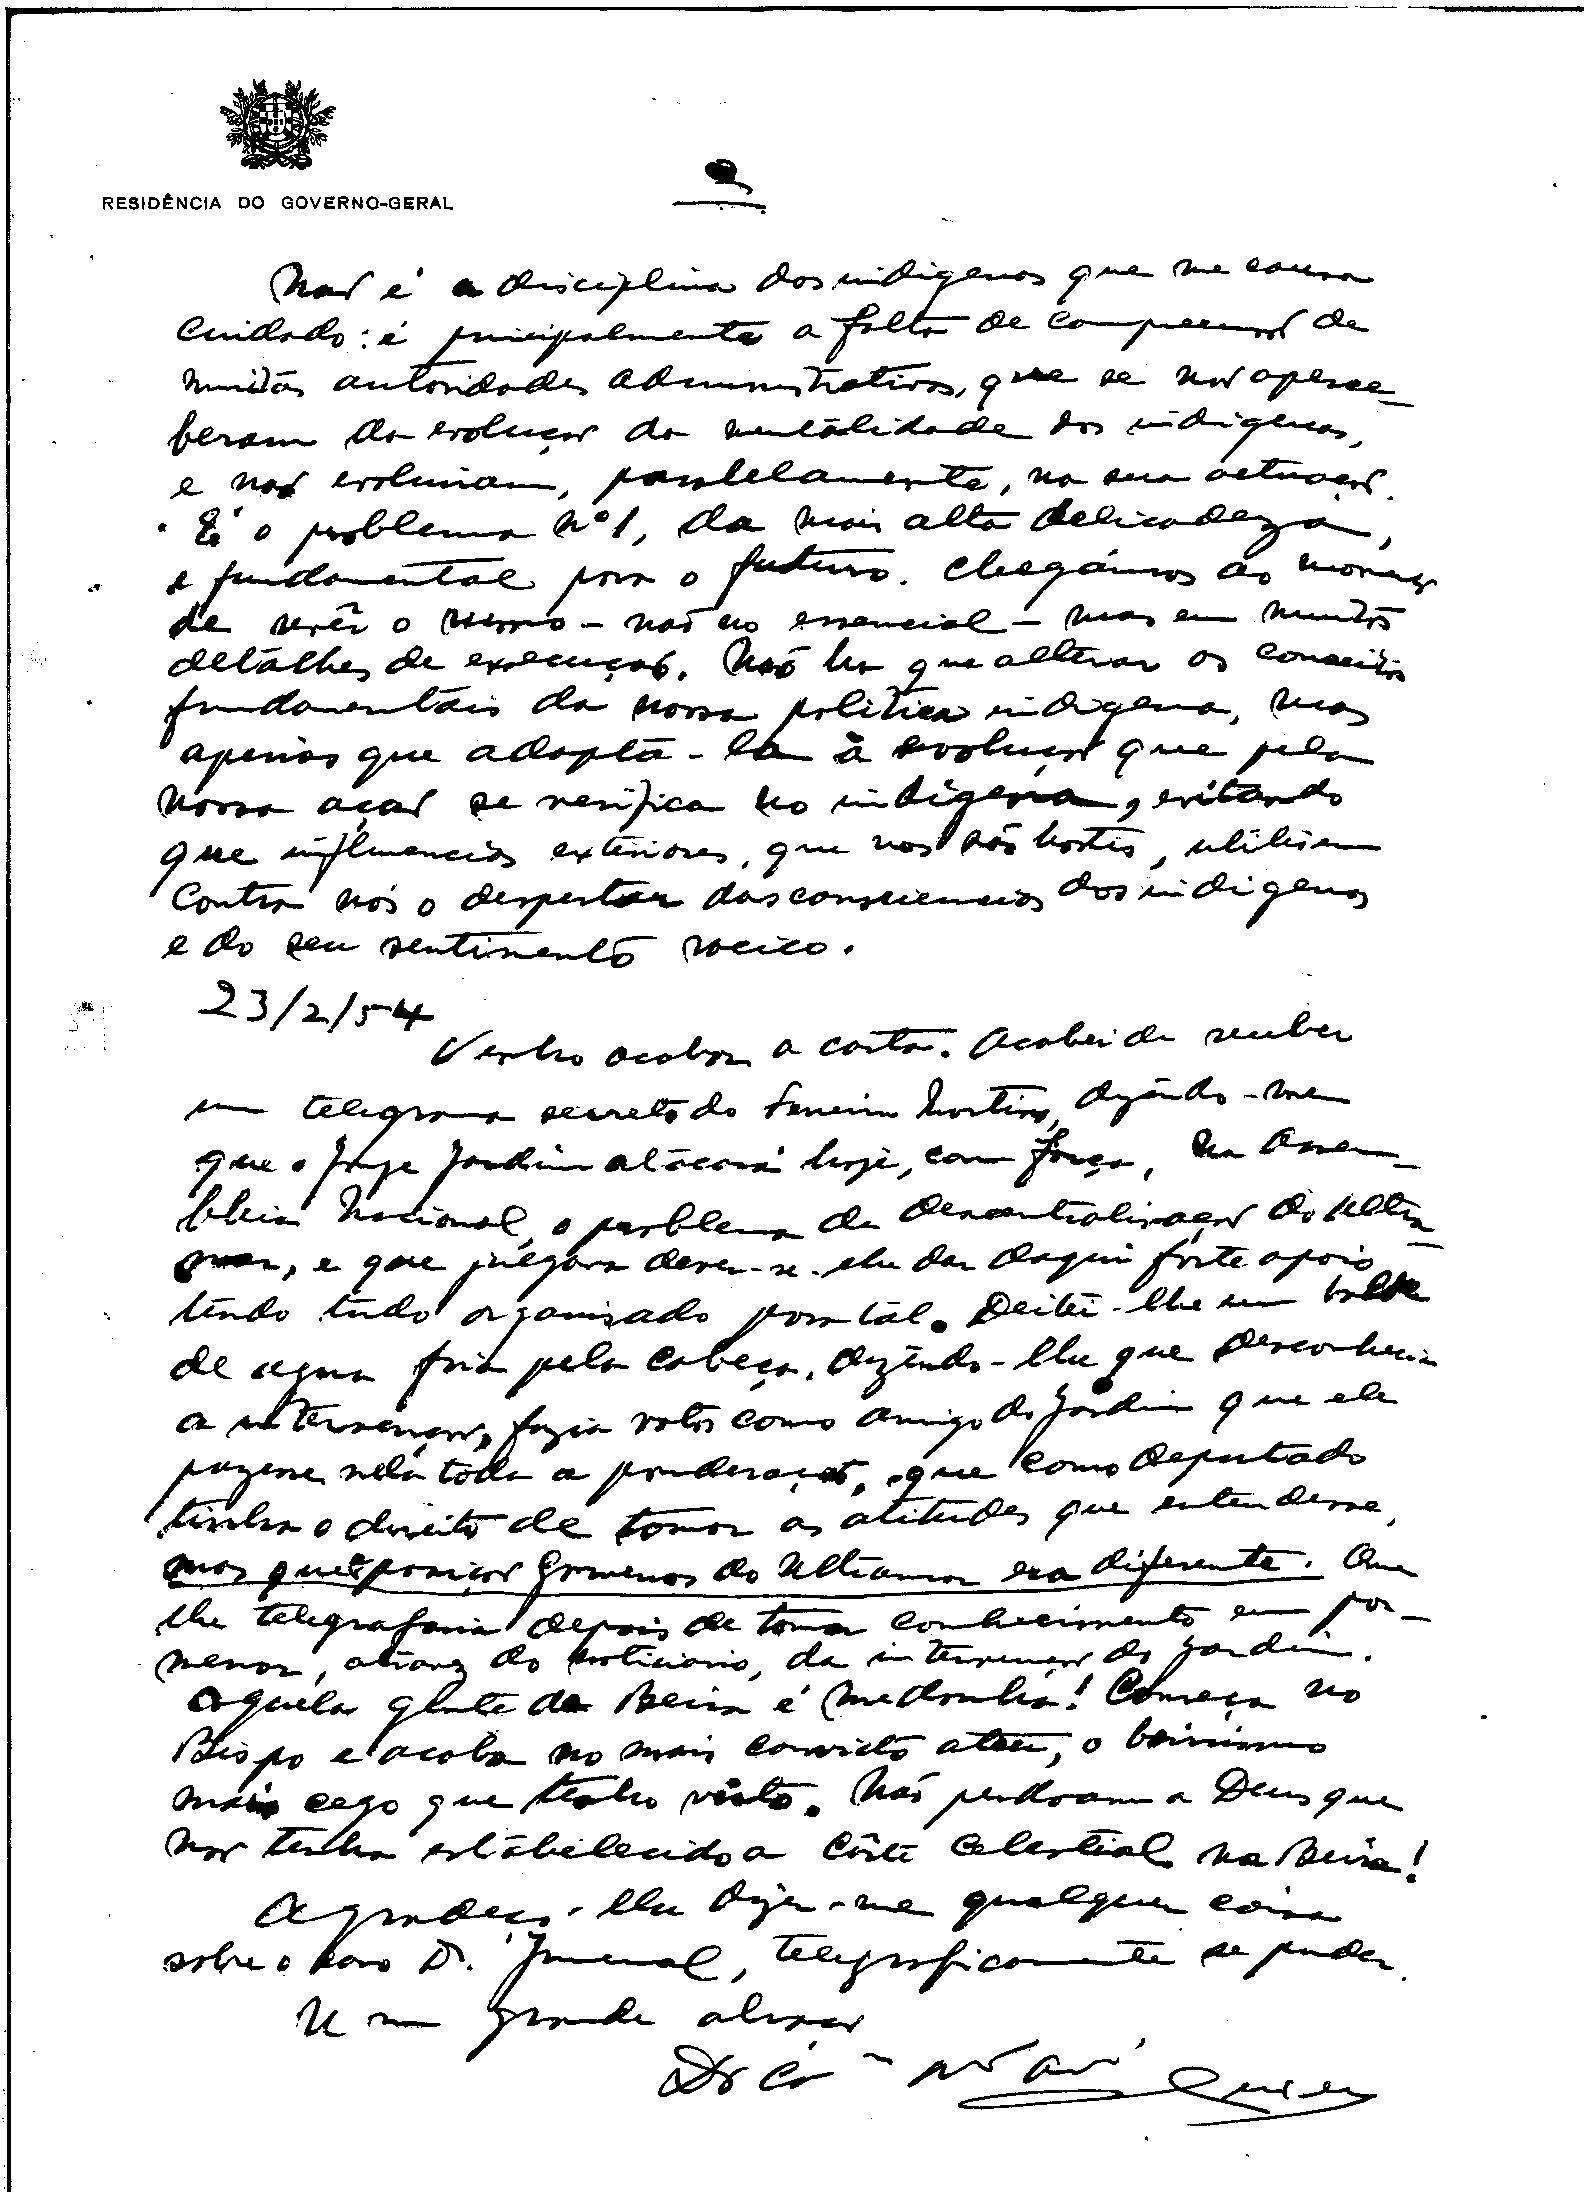 RESIDÊNCIA DO GOVERNO-GERAL
Não é a disciplina dos indigenas que me causa
cuidado: é principalmente a falta de compreensão de
muitas autoridades administrativas, que se não aperce-
beram da evolução da mentalidade dos indigenas,
e não evoluiram, paralelamente, na sua actuação.
É o problema nº 1, da mais alta delicadeza,
e fundamental para o futuro. Chegámos ao momento
de revêr o mesmo - não no essencial - mas em muitos
detalhes de execução. Não ha que alterar os conceitos
fundamentais da nossa politica indigena, mas
apenas que adapta-la à evolução que pela
nossa ação se verifica no indigena, evitando
que influencias exteriores, que nos são hostis, utilisem
contra nós o despertar das consciencias dos indigenas
e do seu sentimento racico.
23/2/54
Venho acabar a carta. Acabei de receber
um telegrama secreto do Ferreira Martins, dizendo-me
que o Jorge Jardim atacará hoje, com força, na Assem-
bleia Nacional, o problema da descentralisação do Ultra-
mar, e que julgava dever-se-lhe dar daqui forte apoio
tendo tudo organisado para tal. Deitei-lhe um balde
de agua fria pela cabeça, dizendo-lhe que desconhecia
a intervenção, fazia votos como amigo do Jardim que ele
pozesse nela toda a ponderação, que como deputado
tinha o direito de tomar as atitudes que entendesse,
mas que a posição Governos do Ultramar era diferente. Que
lhe telegrafaria depois de tomar conhecimento em por-
menor, atravez do noticiario, da intervenção do Jardim.
Aquela gente da Beira é medonha! Começa no
Bispo e acaba no mais convicto ateu, o bairrismo
mais cego que tenho visto. Não perdoam a Deus que
não tenha estabelecido a Côrte Celestial na Beira!
Agradeço-lhe dizer-me qualquer coisa
sobre o caso Dr. Juvenal, telegraficamente se puder.
Um grande abraço